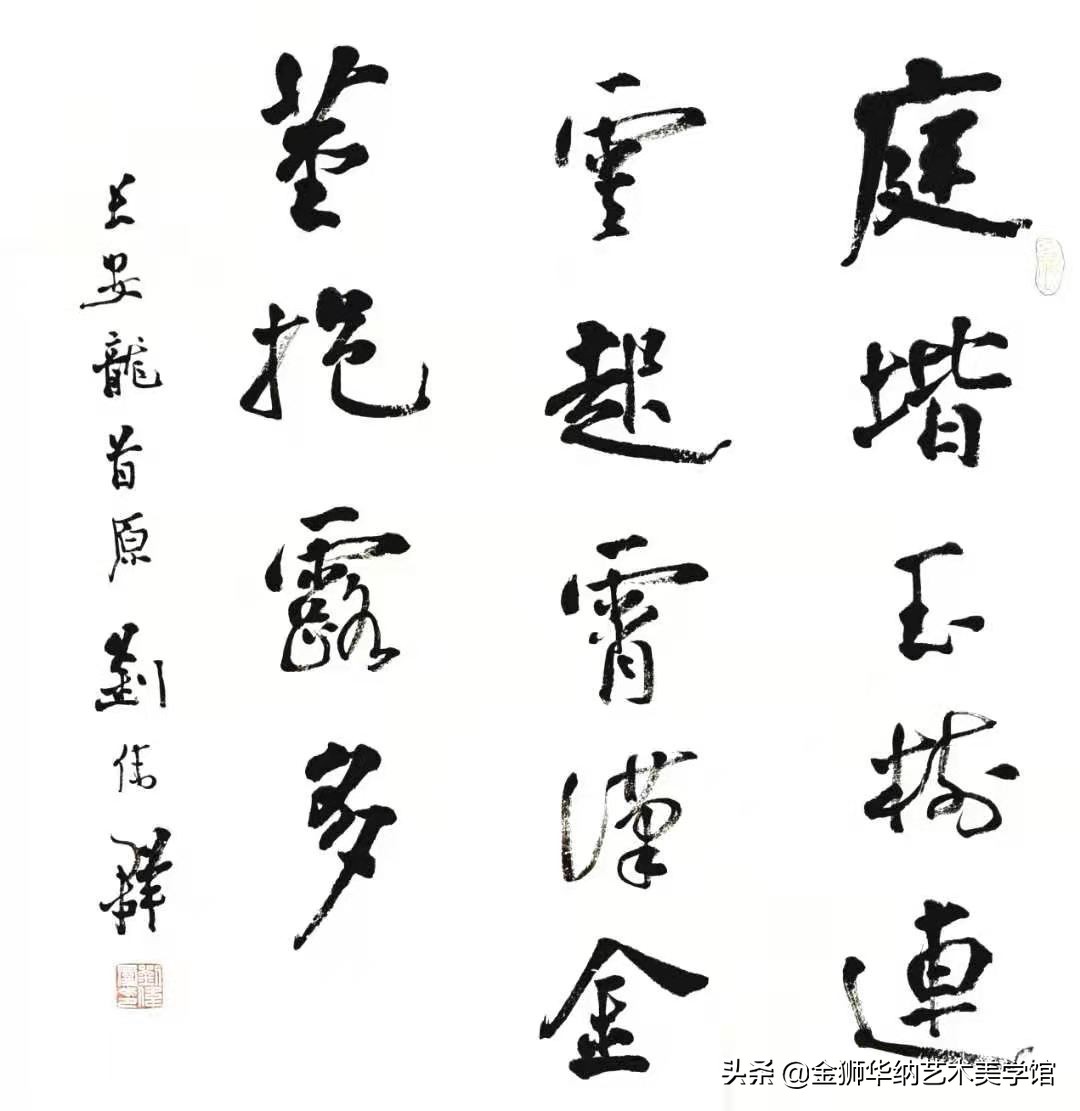 庭堦玉樹連
雲起霄漢金
莖抱露多
长安龍首原劉伟
头条 @金狮华纳艺术美学馆